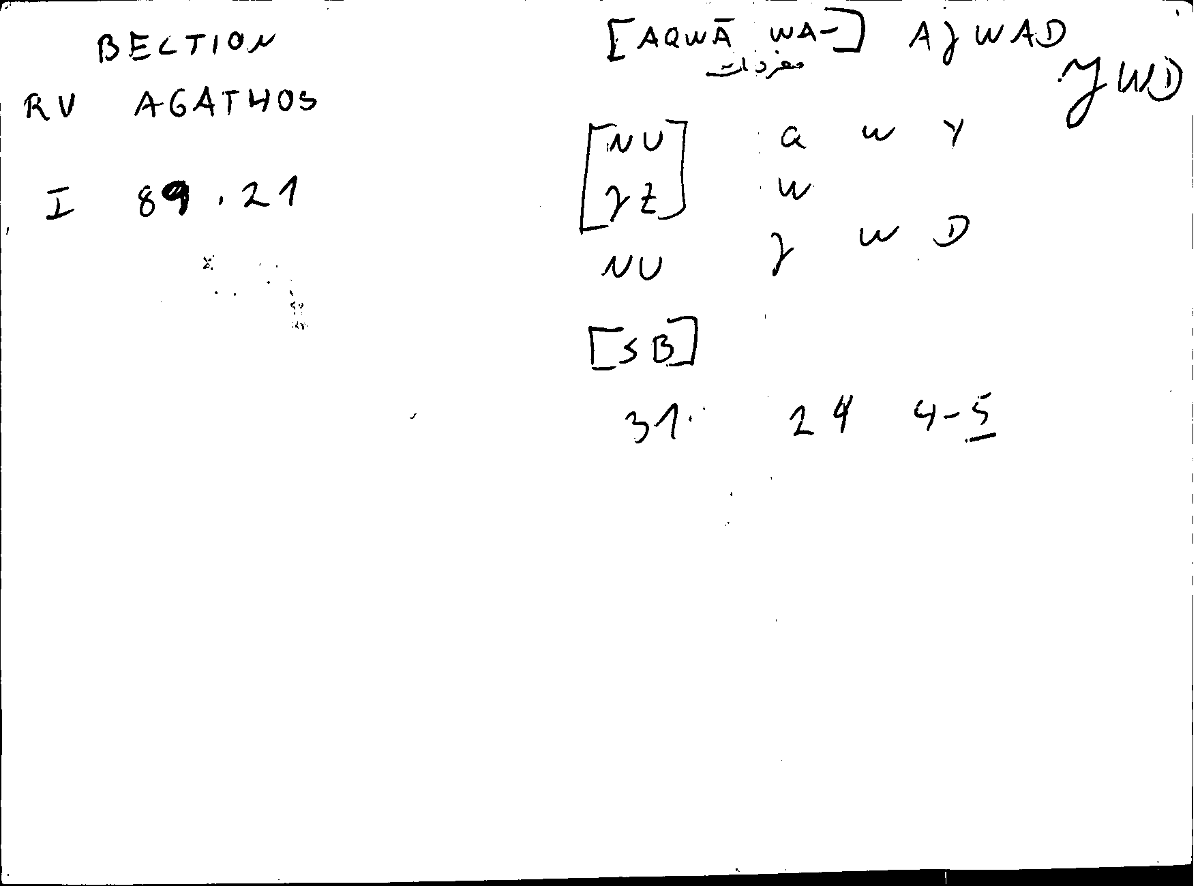 BECTION
RV AGATHOS
I 89.21
[AQWĀ WA-] AJWAD
مفردات
JWD
[NU a w y
JZ] w
NU J W D
[SB]
31. 24 4-5